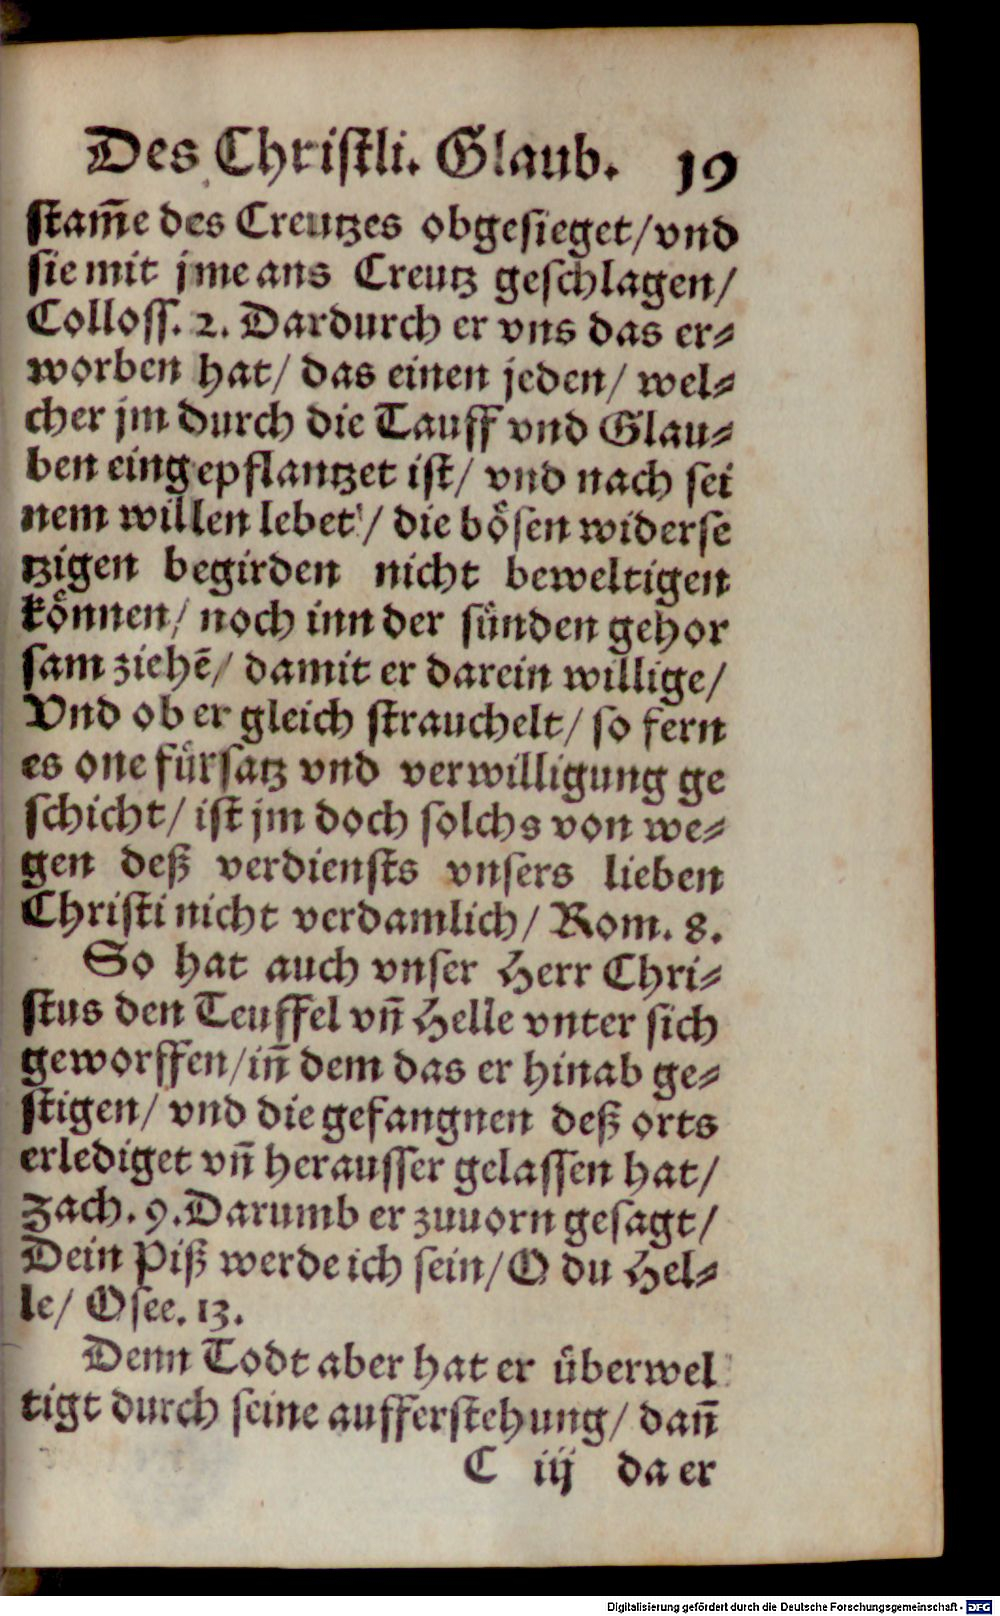 Des Christli. Glaub. 19
stam̃e des Creutzes obgesieget/vnd
sie mit jme ans Creutz geschlagen/
Colloss. 2. Dardurch er vns das er⸗
worben hat/ das einen jeden/ wel⸗
cher jm durch die Tauff vnd Glau⸗
ben eingepflantzet ist/ vnd nach sei
nem willen lebet/ die bösen widerse
tzigen begirden nicht beweltigen
können/ noch inn der sünden gehor
sam ziehẽ/ damit er darein willige/
Vnd ob er gleich strauchelt/ so fern
es one fürsatz vnd verwilligung ge
schicht/ ist jm doch solchs von we⸗
gen deß verdiensts vnsers lieben
Christi nicht verdamlich/ Rom. 8.
So hat auch vnser Herr Chri⸗
stus den Teuffel vñ Helle vnter sich
geworffen/iñ dem das er hinab ge⸗
stigen/ vnd die gefangnen deß orts
erlediget vñ herausser gelassen hat/
Zach. 9. Darumb er zuuorn gesagt/
Dein Piß werde ich sein/ O du Hel⸗
le/ Osee. 13.
Denn Todt aber hat er überwel
tigt durch seine aufferstehung/ dañ
C iij da er
Digitalisierung gefördert durch die Deutsche Forschungsgemeinschaft - DFG